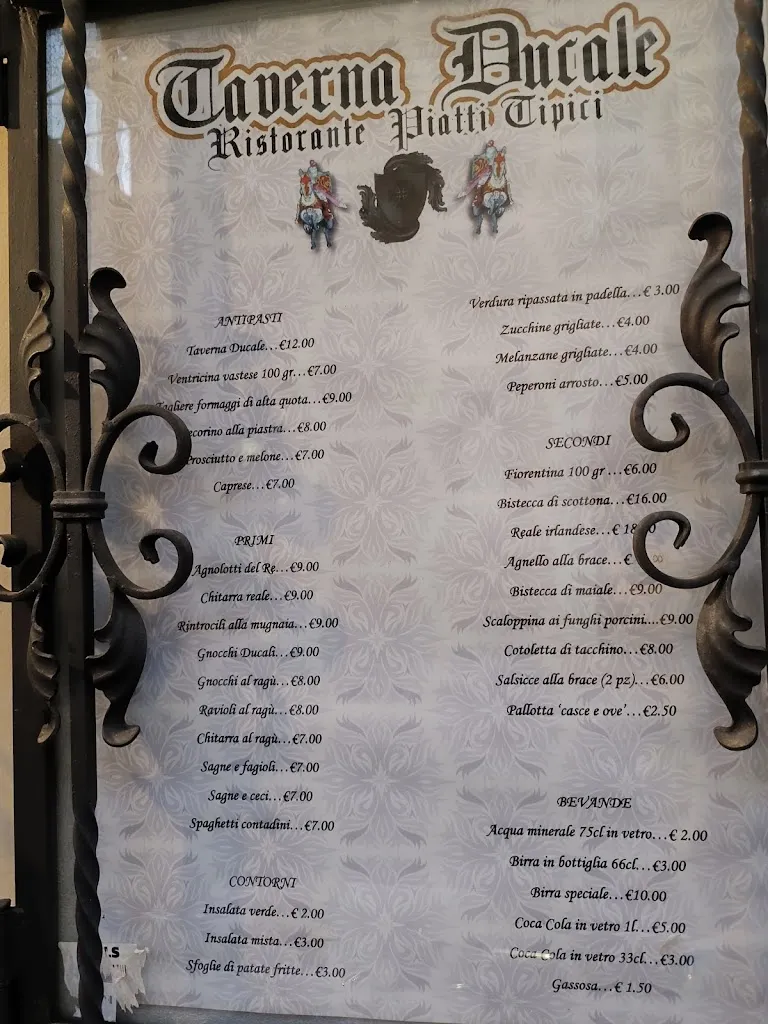 Taverna Ducale
Ristorante Piatti Tipici
ANTIPASTI
Taverna Ducale...€12.00
Ventricina vastese 100 gr...€7.00
Tagliere formaggi di alta quota...€9.00
Pecorino alla piastra...€8.00
Prosciutto e melone...€7.00
Caprese...€7.00
PRIMI
Agnolotti del Re...€9.00
Chitarra reale...€9.00
Rintrocili alla mugnaia...€9.00
Gnocchi Ducali...€9.00
Gnocchi al ragù...€8.00
Ravioli al ragù...€8.00
Chitarra al ragù...€7.00
Sagne e fagioli...€7.00
Sagne e ceci...€7.00
Spaghetti contadini...€7.00
CONTORNI
Insalata verde...€ 2.00
Insalata mista...€3.00
Sfoglie di patate fritte...€3.00
Verdura ripassata in padella...€ 3.00
Zucchine grigliate...€4.00
Melanzane grigliate...€4.00
Peperoni arrosto...€5.00
SECONDI
Fiorentina 100 gr ...€6.00
Bistecca di scottona...€16.00
Reale irlandese...€
Agnello alla brace...€
Bistecca di maiale...€9.00
Scaloppina ai funghi porcini....€9.00
Cotoletta di tacchino...€8.00
Salsicce alla brace (2 pz)...€6.00
Pallotta 'casce e ove'...€2.50
BEVANDE
Acqua minerale 75cl in vetro...€ 2.00
Birra in bottiglia 66cl...€3.00
Birra speciale...€10.00
Coca Cola in vetro 1l...€5.00
Coca Cola in vetro 33cl...€3.00
Gassosa...€ 1.50